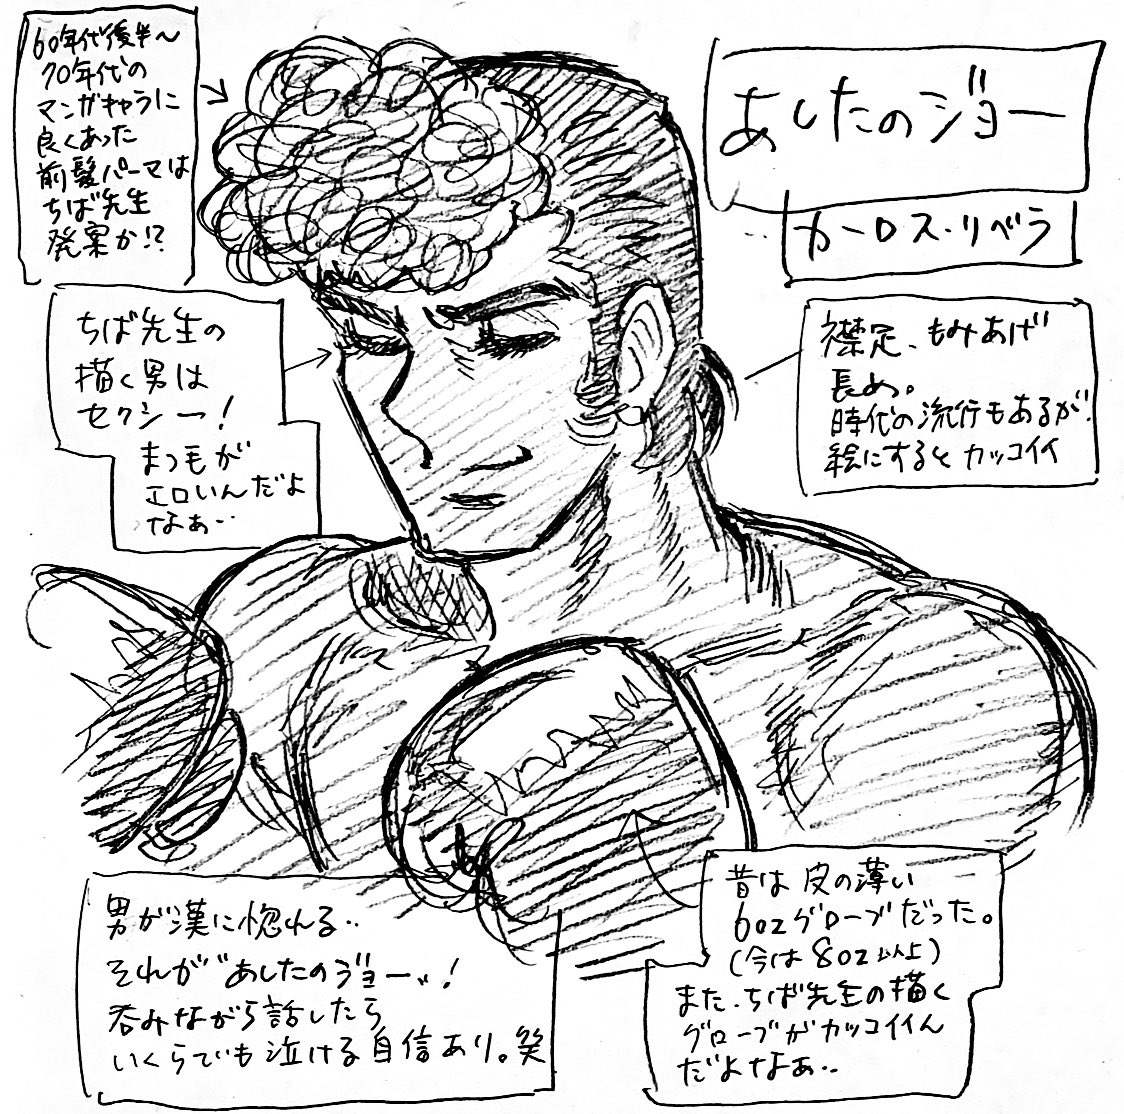 60年代後半〜
70年代の
マンガキャラに
良くあった
前髪パーマは
ちば先生
発案か!?
あしたのジョー
カーロス・リベラ
ちば先生の
描く男は
セクシー!
まつ毛が
エロいんだよ
なぁ‥
襟足、もみあげ
長め。
時代の流行もあるが
絵にするとカッコイイ
男が漢に惚れる‥
それが"あしたのジョー"!
呑みながら話したら
いくらでも泣ける自信あり。笑
昔は皮の薄い
6ozグローブだった。
(今は8oz以上)
また、ちば先生の描く
グローブがカッコイイん
だよなぁ‥